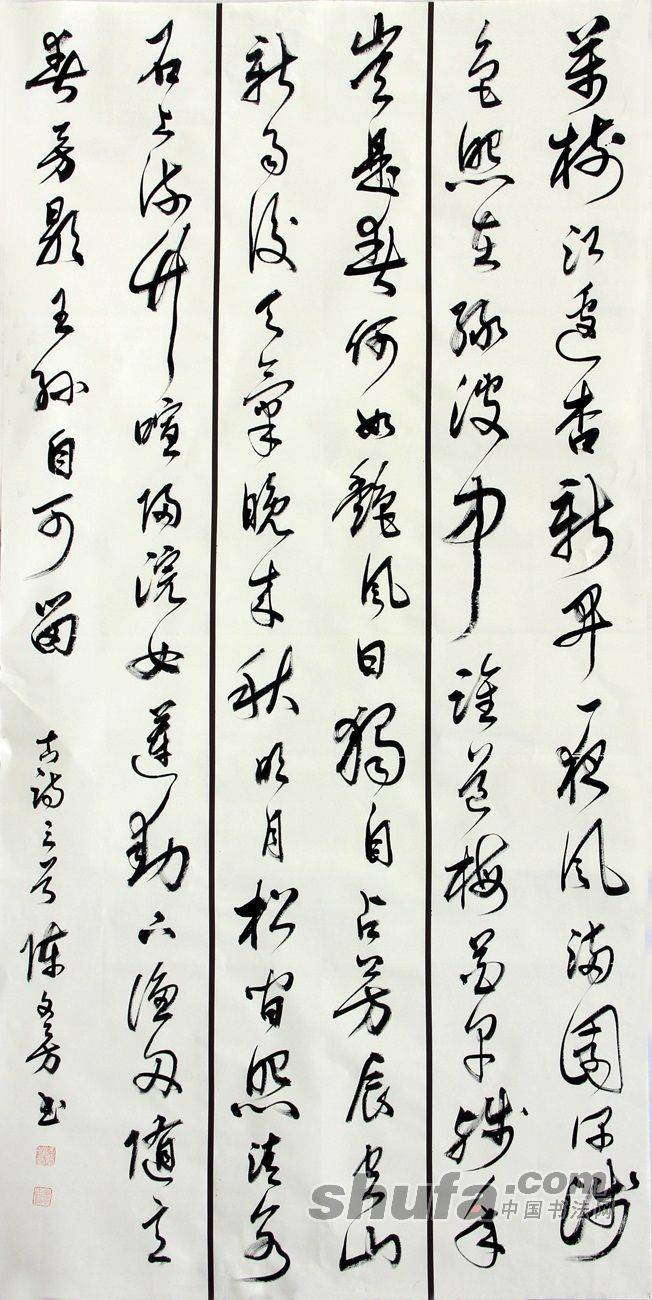 萬樹江邊杏新開一夜風滿園深淺
色照在綠波中誰道梅花早殘年
豈是春何如艷風日獨自占芳辰空山
新雨後天氣晚來秋明月松間照清泉
石上流竹喧歸浣女蓮動下漁舟隨意
春芳歇王孫自可留
古詩三首 陳 芳书
shufa.com
中国书法网